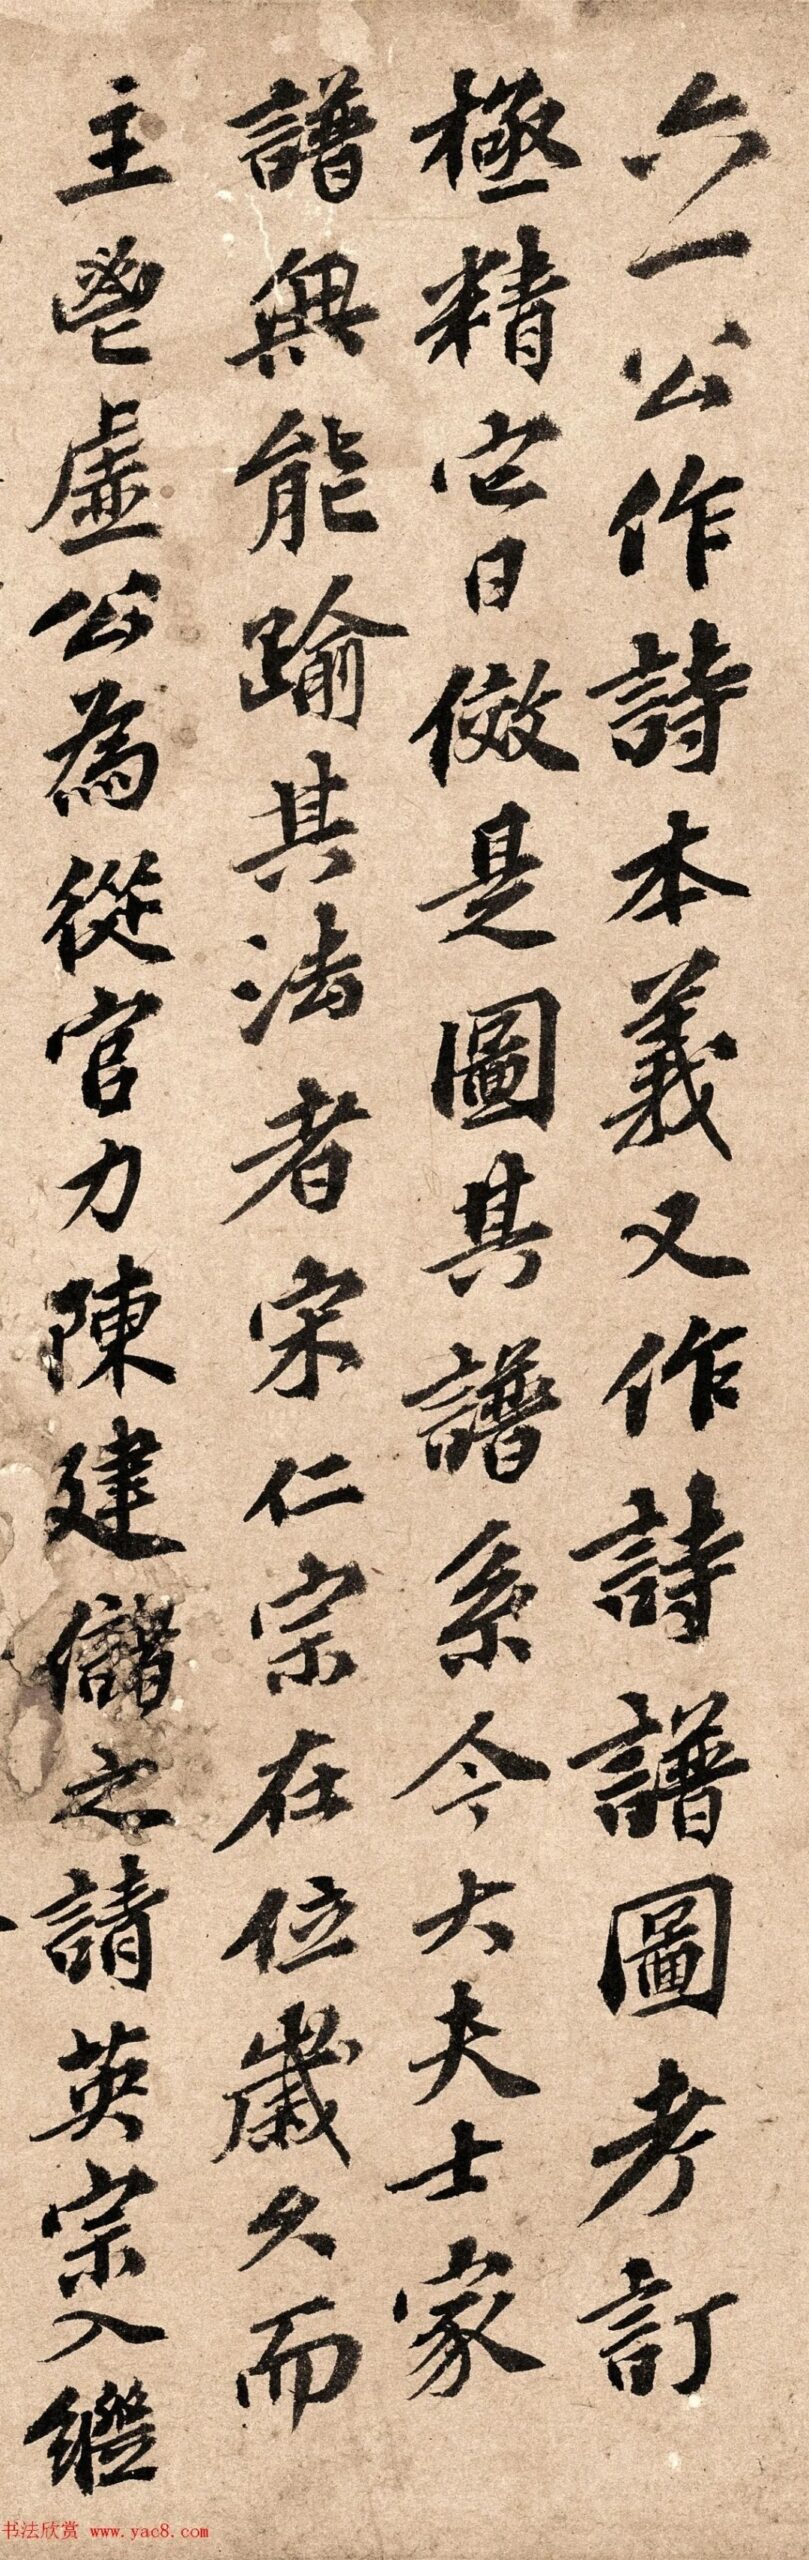 六一公作詩本義又作詩譜圖考訂
極精它日倣是圖其譜系今大夫士家
譜無能踰其法者宋仁宗在位歲久而
主鬯虛公為從官力陳建儲之請英宗入繼
书法欣赏 www.yac8.com